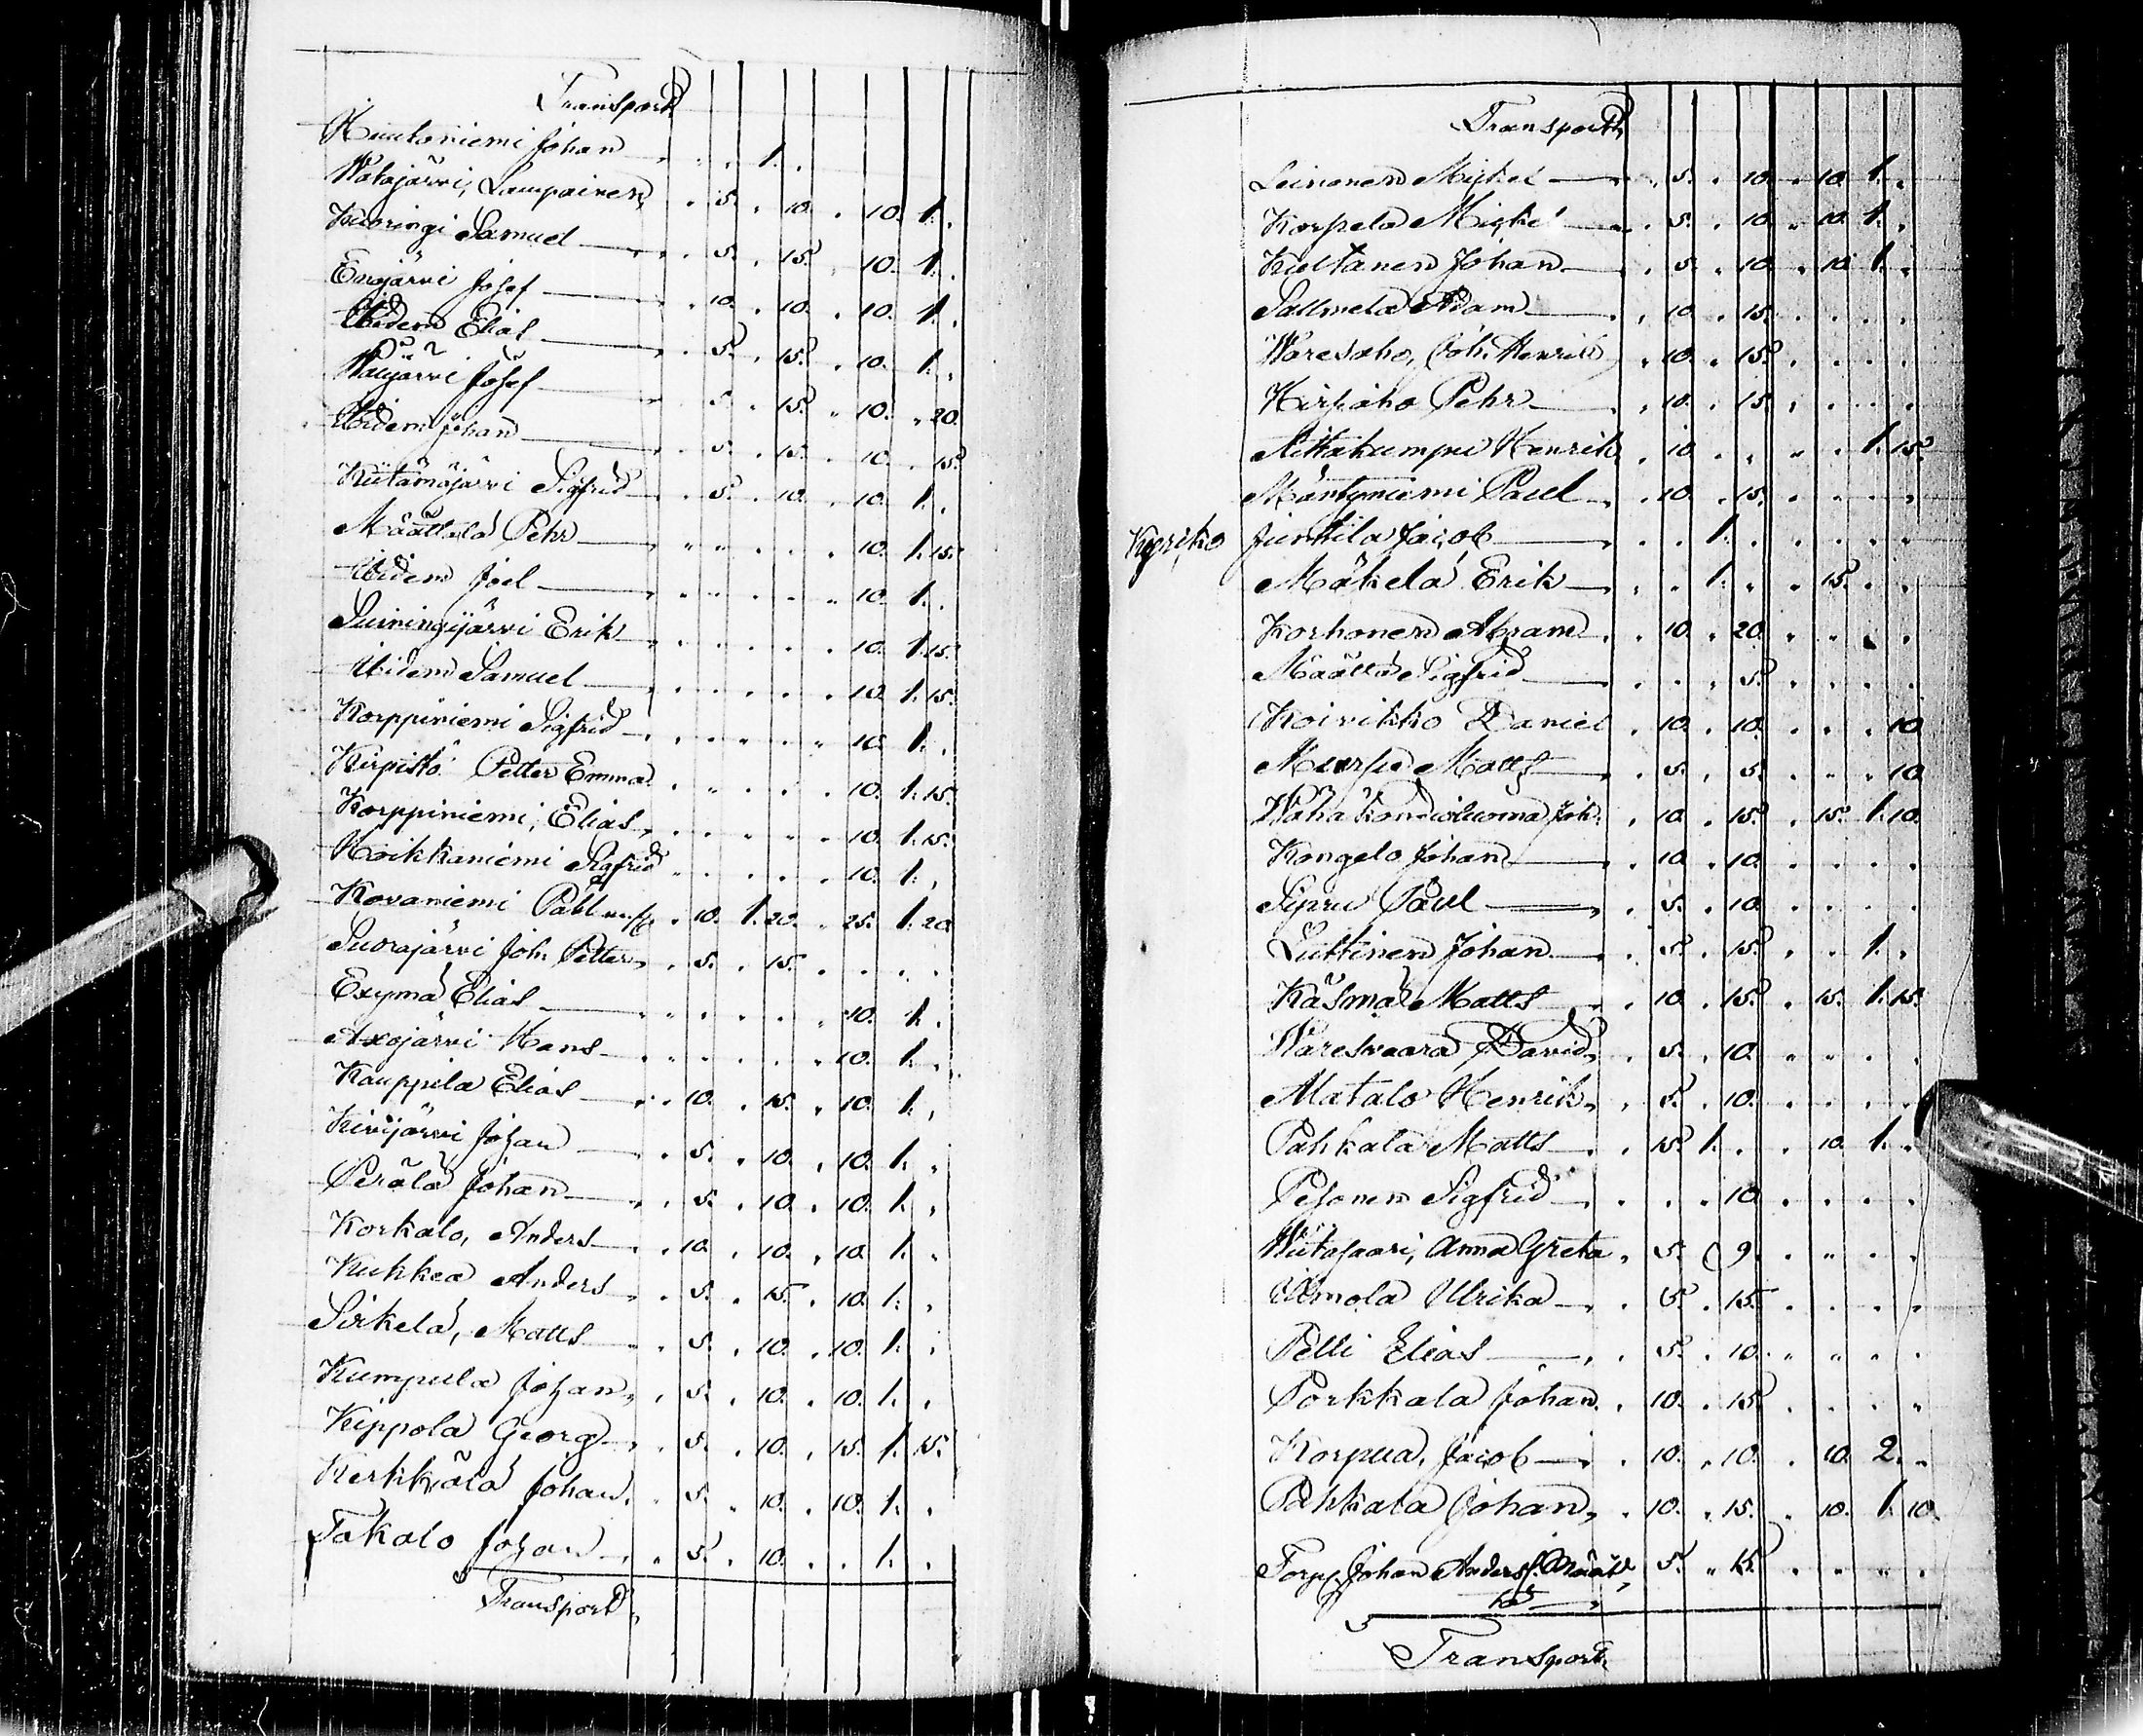 Transport
Huutoniemi Johan " " " 1. "
Watajärvi, Lampainen " 5. " 10. " 10. 1. "
Kuoringi Samuel " 5. " 15. " 10. 1. "
Enojärvi Josef " 10. " 10. " 10. 1. "
Ibidem Elias " 5. " 15. " 10. 1. "
Josef " 5. " 15. " 10. " 20.
Ibidem Johan " 5. " 15. " 10. " 15.
Kiitämäjärvi Sigfrid " 5. " 10. " 10. 1. "
Määttälä Pehr " " " " " 10. 1. 15.
Ibidem Joel " " " " " 10. 1. "
Suiningijärvi Erik " " " " " 10. 1. 15.
Ibidem Samuel " " " " " 10. 1. 15.
Korppiniemi Sigfrid " " " " " 10. 1. "
Kirpistö Petter Emma " " " " " 10. 1. 15.
Korppiniemi, Elias " " " " " 10. 1. 15.
Hoikkaniemi Sigfrid " " " " " 10. 1. "
Kovaniemi " 10. 1. 20. " 25. 1. 20.
Suorajärvi Joh. Petter " 5. " 15. " " " "
Exymä Elias " " " " " 10. 1. "
Axojärvi Hans " " " " " 10. 1. "
Kauppila Elias " 10. " 15. " 10. 1. "
Kivijärvi Johan " 5. " 10. " 10. 1. "
Perälä Johan " 5. " 10. " 10. 1. "
Korkalo, Anders " 10. " 10. " 10. 1. "
Kukkea Anders " 5. " 15. " 10. 1. "
Sirkelä, Matts " 5. " 10. " 10. 1. "
Kumpula Johan " 5. " 10. " 10. 1. "
Kippola Georg " 5. " 10. " 15. 1. 15.
Kerkkälä Johan " 5. " 10. " 10. 1. "
Takalo Johan " 5. " 10. " " 1. "
Transport
Transport
Leinonen Michel " 5. " 10. " 10. 1. "
Korpela Michel " 5. " 10. " 10. 1. "
Kultanen Johan " 5. " 10. " 10. 1. "
Sallmela Adam " 10. " 15. " " " "
Waresaho, Joh. Henrik " 10. " 15. " " " "
Hirsiaho Pehr " 10. " 15. " " " "
Aittakumpu Henrik " 10. " " " " 1. 15.
Mäntyniemi Paul " 10. " 15. " " " "
Juntila Jacob " " 1. " " " " "
Mäkelä Erik " " 1. " " 15. " "
Korhonen Abram " 10. " 20. " " " "
Määttä Sigfrid " " " 5. " " " "
Koivikko Daniel " 10. " 10. " " " 10.
Matts " 5. " 5. " " " 10.
Joh. " 10. " 15. " 15. 1. 10.
Kongelo Johan " 10. " 10. " " " "
Sipru Paul " 5. " 10. " " " "
Luttinen Johan " 5. " 15. " " 1. "
Käsmä Matts " 10. " 15. " 15. 1. 15.
Waresvaara David " 5. " 10. " " " "
Matalo Henrik " 5. " 10. " " " "
Pahkala Matts " 15. 1. " " 10. 1. "
Pesonen Sigfrid " " " 10. " " " "
Wiitasaari, Anna Greta " 5. " 9. " " " "
Ulrika " 5. " 15. " " " "
Pelli Elias " 5. " 10. " " " "
Porkkala Johan " 10. " 15. " " " "
Korpua, Jacob " 10. " 10. " 10. 2. "
Pahkala Johan " 10. " 15. " 10. 1. 10.
Torp. Johan Anders. Määt " 5. " 15. " " " "
tä
Transport